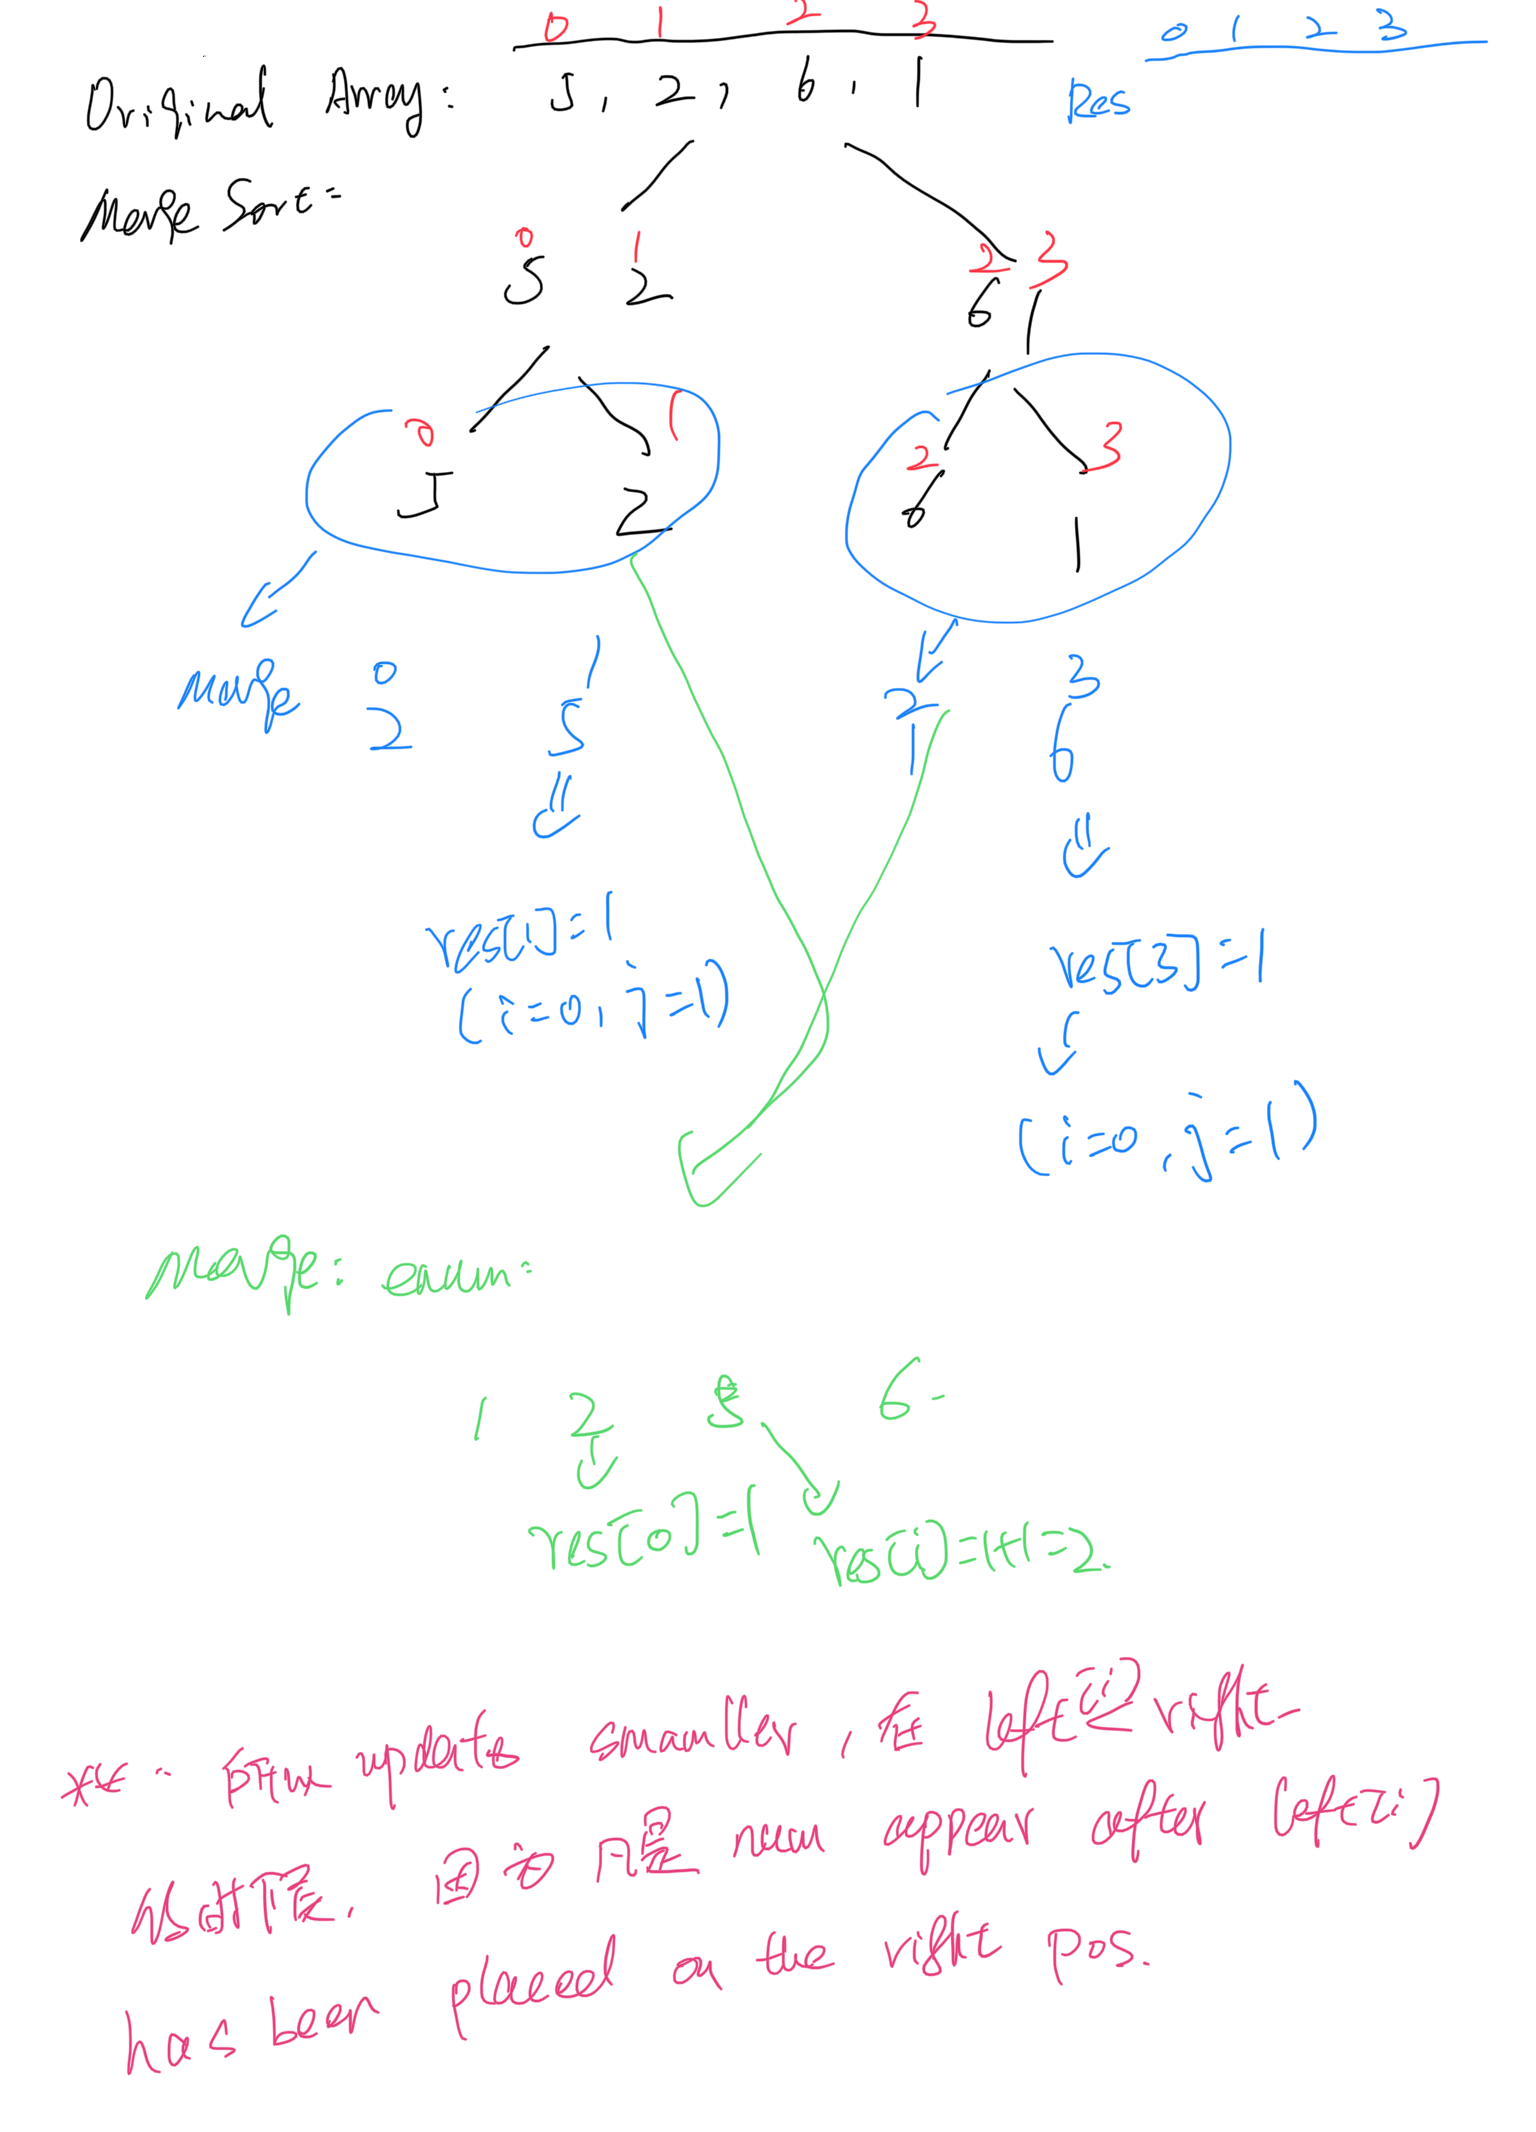 0 1 2 3
0 1 2 3
Original Array: 5, 2, 6, 1
Res
Merge Sort:
0 1 2 3
5 2 6 1
0 1 2 3
5 2 6 1
Merge 0 1 2 3
2 5 1 6
res[1]=1 res[3]=1
(i=0, j=1) (i=0, j=1)
Merge: enum:
1 2 5 6
res[0]=1 res[i]=1+1=2.
**: update smaller, 在 left[i] right
的时候, 因为 凡是 num appear after left[i]
has been placed on the right pos.